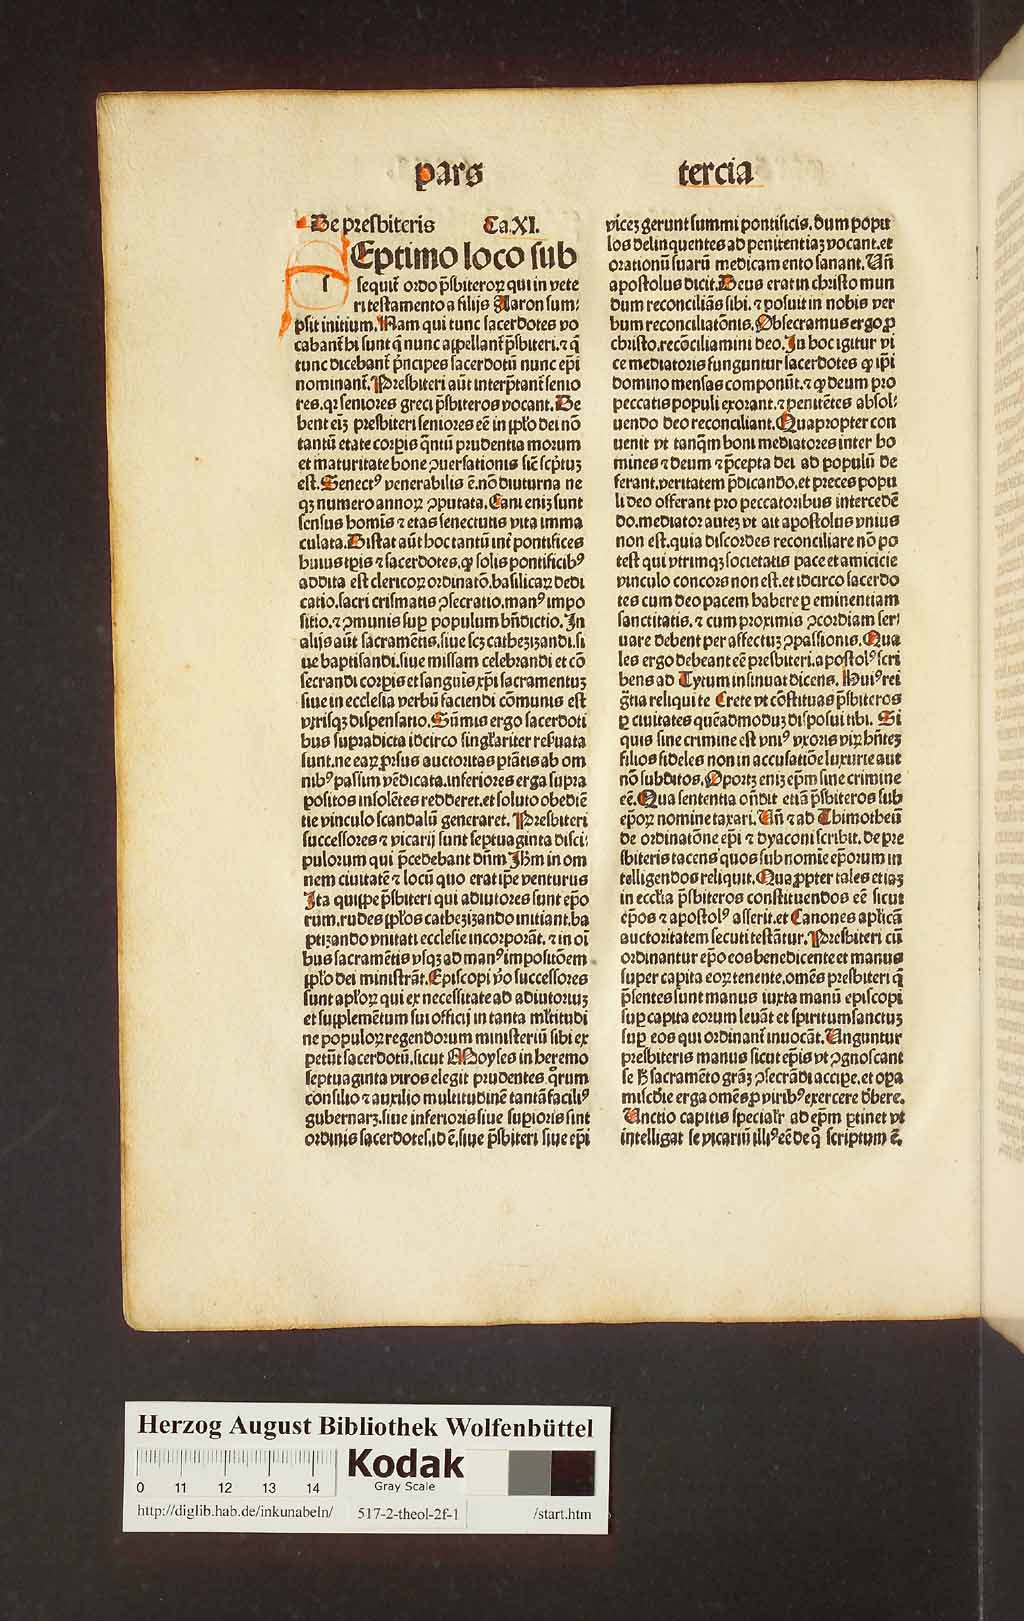 pars tercia
De presbiteris Ca.XI.
Eptimo loco sub
s sequit̃ ordo p̃sbiteroꝝ qui in vete
ri testamento a filijs Aaron sum/
psit initium. Nam qui tunc sacerdotes vo
cabant̃ hi sunt q̃ nunc appellant̃ p̃sbiteri. ⁊ q̃
tunc dicebant̃ p̃ncipes sacerdotũ nunc ep̃i
nominant̃. Presbiteri aũt interp̃tant̃ senio
res. qꝛ seniores greci p̃sbiteros vocant. De
bent eiꝫ presbiteri seniores eẽ in ꝓp̃lo dei nõ
tantũ etate corpis q̃ntũ prudentia morum
et maturitate bone ꝯuersationis sic̃ sc̃ptuꝫ
est. Senectꝰ venerabilis ẽ. nõ diuturna ne
qꝫ numero annoꝝ ꝯputata. Cani eniꝫ sunt
sensus homis̃ ⁊ etas senectutis vita imma
culata. Distat aũt hoc tantũ int̃ pontifices
huius tp̃is ⁊ sacerdotes. qꝙ solis pontificibꝰ
addita est clericoꝝ ordinatõ. basilicaꝝ dedi
catio. sacri crismatis ꝯsecratio. manꝰ impo
sitio. ⁊ ꝯmunis suꝑ populum bñdictio. In
alijs aũt sacramẽtis. siue scꝫ cathezizandi. si
ue baptisandi. siue missam celebrandi et cõ
secrandi corpis et sanguis xp̃i sacramentuꝫ
siue in ecclesia verbũ faciendi cõmunis est
vtrisqꝫ dispensatio. Sũmis ergo sacerdoti
bus supradicta idcirco singl̃ariter res̃uata
sunt. ne eaꝝ ꝓrsus auctoritas p̃tatis ab om
nibꝰ passim vẽdicata. inferiores erga supra
positos insolẽtes redderet. et soluto obediẽ
tie vinculo scandalũ generaret. Presbiteri
successores ⁊ vicarij sunt septuaginta disci/
pulorum qui p̃cedebant dñm Jh̃m in om
nem ciuitatẽ ⁊ locũ quo erat ip̃e venturus
Ita quippe p̃sbiteri qui adiutores sunt ep̃o
rum. rudes ꝓp̃los cathezizando initiant. ba
ptizando vnitati ecclesie incorporãt. ⁊ in oĩ
bus sacramẽtis vsqꝫ ad manꝰ impositõem
ꝓp̃lo dei ministrãt. Episcopi ṽo successores
sunt apl̃oꝝ qui ex necessitate ad adiutoriuꝫ
et supplemẽtum sui officij in tanta ml̃titudi
ne populoꝝ regendorum ministeriũ sibi ex
petũt sacerdotũ. sicut Moyses in heremo
septuaginta viros elegit prudentes. q̃rum
consilio ⁊ auxilio multitudinẽ tantã faciliꝰ
gubernarꝫ. siue inferioris siue suꝑioris sint
ordinis sacerdotes. id ẽ. siue p̃sbiteri siue ep̃i
vices gerunt summi pontificis. dum popu
los delinquentes ad penitentiaꝫ vocant. et
orationũ suarũ medicamento sanant. Uñ
apostolus dicit. Deus erat in christo mun
dum reconciliãs sibi. ⁊ posuit in nobis ver
bum reconciliatõnis. Obsecramus ergo ꝓ
christo. recõciliamini deo. In hoc igitur vi
ce mediatoris funguntur sacerdotes qꝙ ip̃i
domino mensas componũt. ⁊ qꝙ deum pro
peccatis populi exorant. ⁊ penitẽtes absol/
uendo deo reconciliant. Quapropter con
uenit vt tanq̃m boni mediatores inter ho
mines ⁊ deum ⁊ p̃cepta dei ad populũ de
ferant. veritatem p̃dicando. et preces popu
li deo offerant pro peccatoribus intercedẽ
do. mediator auteꝫ vt ait apostolus vnius
non est. quia discordes reconciliare nõ po
test qui vtrimqꝫ societatis pace et amicicie
vinculo concors non est. et idcirco sacerdo
tes cum deo pacem habere ꝑ eminentiam
sanctitatis. ⁊ cum proximis ꝯcordiam ser/
uare debent per affectuꝫ ꝯpassionis. Qua
les ergo debeant eẽ presbiteri. apostolꝰ scri
bens ad Tytum insinuat dicens. Huiꝰ rei
gr̃a reliqui te Crete vt cõstituas p̃sbiteros
ꝑ ciuitates quẽadmoduꝫ disposui tibi. Si
quis sine crimine est vniꝰ vxoris vir. hñteꝫ
filios fideles non in accusatiõe luxurie aut
nõ subditos. Oportꝫ eniꝫ ep̃m sine crimine
eẽ. Qua sententia oñdit etiã p̃sbiteros sub
ep̃oꝝ nomine taxari. Uñ ⁊ ad Thimotheũ
de ordinatõne ep̃i ⁊ dyaconi scribit. de pre
sbiteris tacens quos sub nomie ep̃orum in
telligendos reliquit. Quaꝓpter tales etiaꝫ
in eccl̃ia p̃sbiteros constituendos eẽ sicut
ep̃os ⁊ apostolꝰ asserit. et Canones apl̃icã
auctoritatem secuti testãtur. Presbiteri cũ
ordinantur ep̃o eos benedicente et manus
super capita eoꝝ tenente. omẽs presbiteri q̃
p̃sentes sunt manus iuxta manũ episcopi
suꝑ capita eorum leuãt et spiritumsanctuꝫ
suꝑ eos qui ordinant̃ inuocãt. Unguntur
presbiteris manus sicut ep̃is vt ꝯgnoscant
se h̃ sacramẽto grãꝫ ꝯsecrãdi accipe. et opa
mis̃cdie erga omẽs ꝓ viribꝰ exercere d̃bere.
Unctio capitis specialr̃ ad ep̃m ꝑtinet vt
intelligat se vicariũ illiꝰ eẽ de q̃ scriptum ẽ.
Herzog August Bibliothek Wolfenbüttel
Kodak
Gray Scale
0 11 12 13 14
http://diglib.hab.de/inkunabeln/ 517-2-theol-2f-1 /start.htm